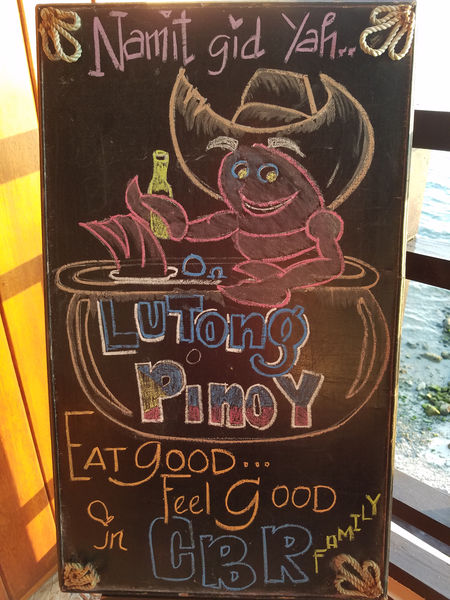 Namit gid Yah..
LuTong
PinoY
EAT gOOD...
Feel gOOD
In CBR FAMILY